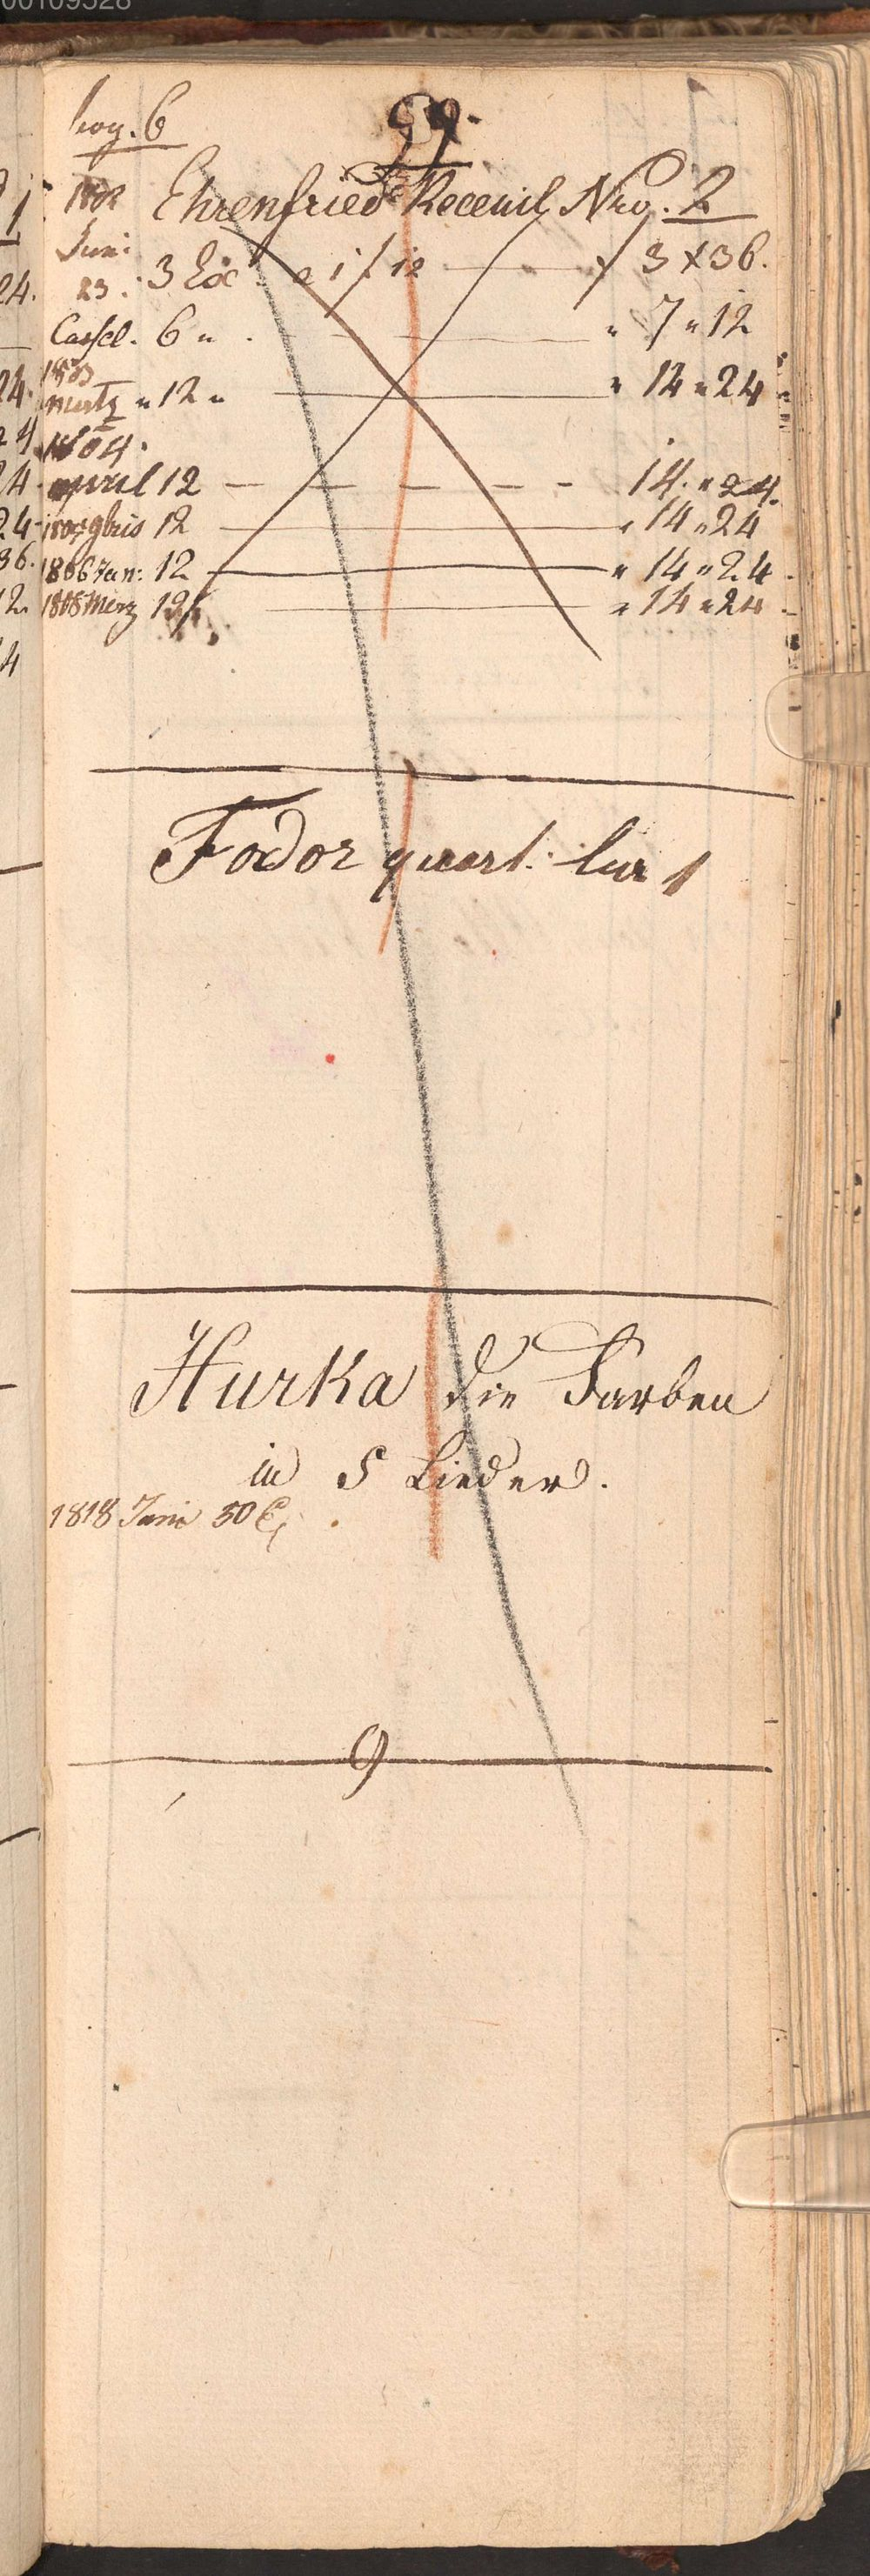 00109528
bog. 6
99.
1802 Ehrenfried Receuil Nro. 2
Juni
23. 3 Ex. a 1 f 12 f 3 x 36.
Cassel. 6 " . " 7 " 12
1803
Mertz " 12 " " 14 " 24
1804.
april 12 — — — — 14. " 24.
9bris 12 " 14 " 24
1806 Jan: 12 " 14 " 24.
1808 Merz 12 " 14 " 24
Fodor quart. 1
Hurka die Farben
in 5 Lieder.
1818 Juni 50 E
9